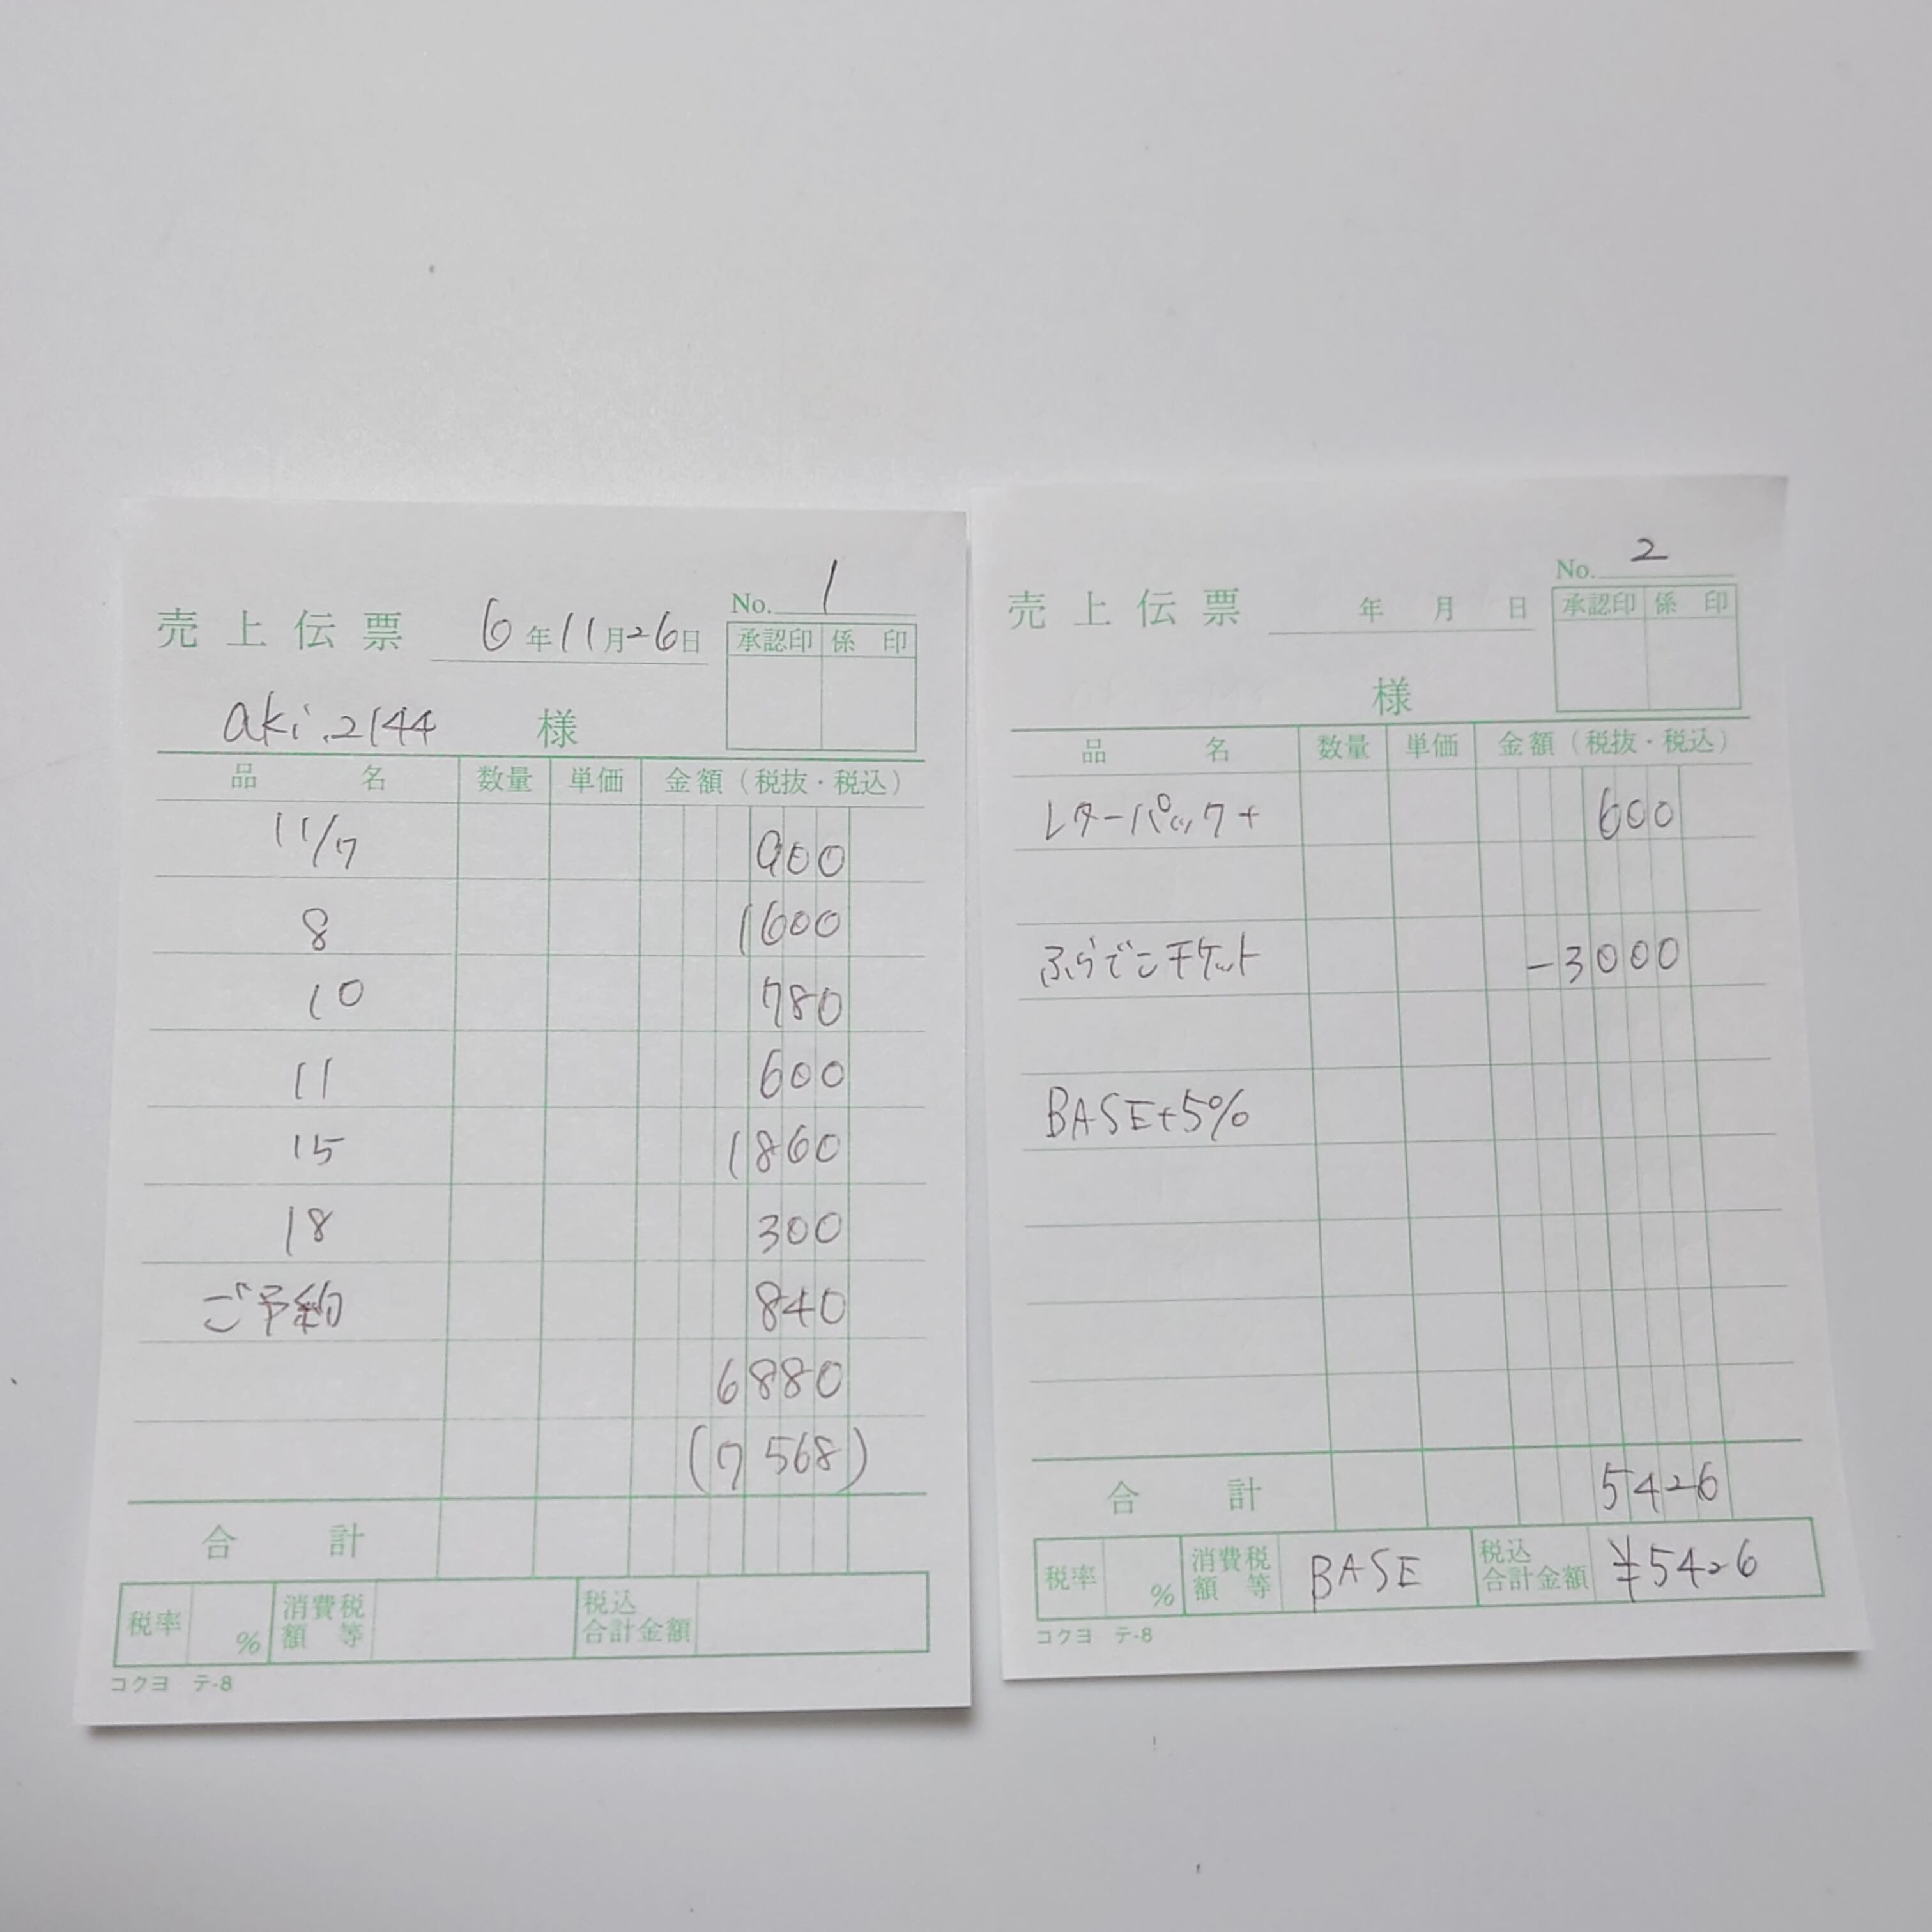 No. 1
売上伝票 6年11月26日
承認印 係印
aki.2144 様
品名 数量 単価 金額（税抜・税込）
11/7 900
8 1600
10 780
11 600
15 1860
18 300
ご予約 840
6880
(7568)
合計
税率 % 消費税額等 税込合計金額
コクヨ テ-8
No. 2
売上伝票 年 月 日
承認印 係印
様
品名 数量 単価 金額（税抜・税込）
レターパック+ 600
ふらでこチケット -3000
BASE+5%
合計 5426
税率 % 消費税額等 BASE 税込合計金額 ¥5426
コクヨ テ-8